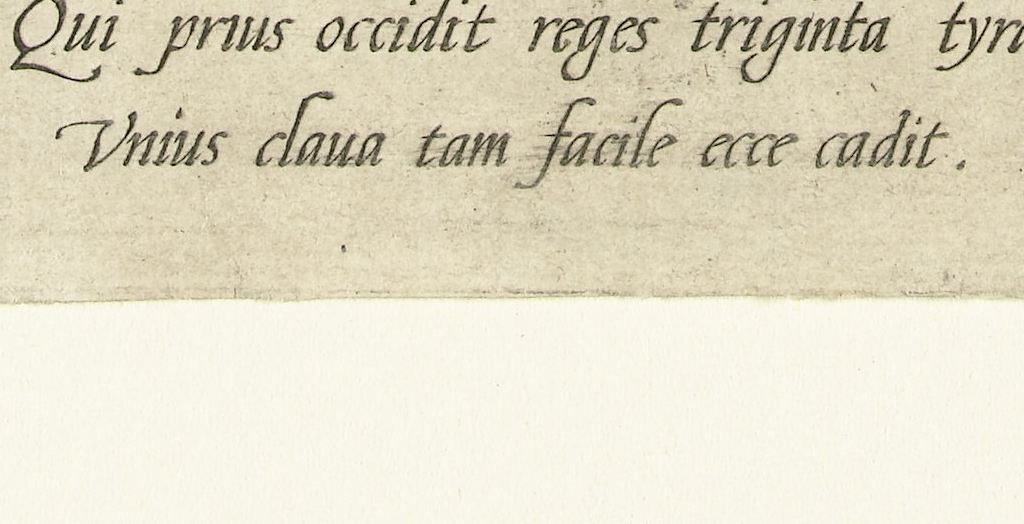 Qui prius occidit reges triginta
Vnius claua tam facile ecce cadit.